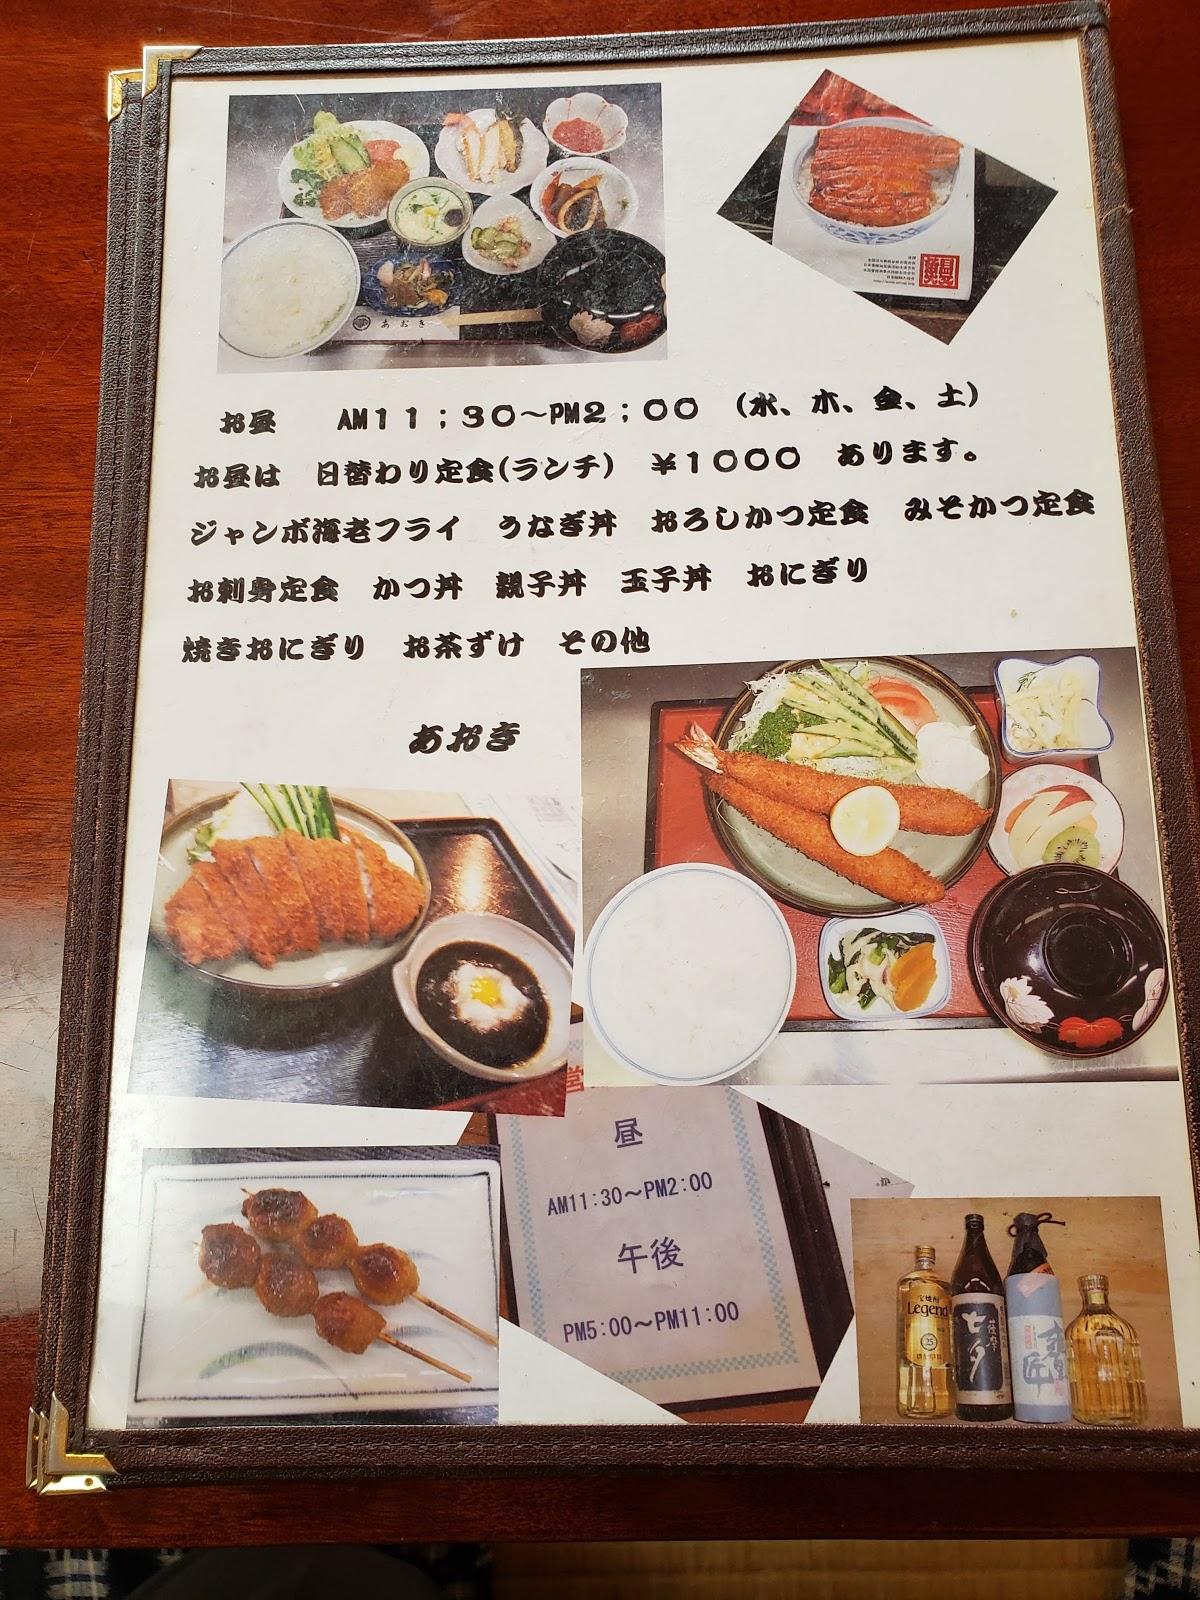 あおき
お昼　　AM１１；３０～PM２；００　（水、木、金、土）
お昼は　日替わり定食（ランチ）　￥１０００　あります。
ジャンボ海老フライ　うなぎ丼　おろしかつ定食　みそかつ定食
お刺身定食　かつ丼　親子丼　玉子丼　おにぎり
焼きおにぎり　お茶ずけ　その他
あおき
営
昼
AM11:30～PM2:00
午後
PM5:00～PM11:00
Legend
25
七夕